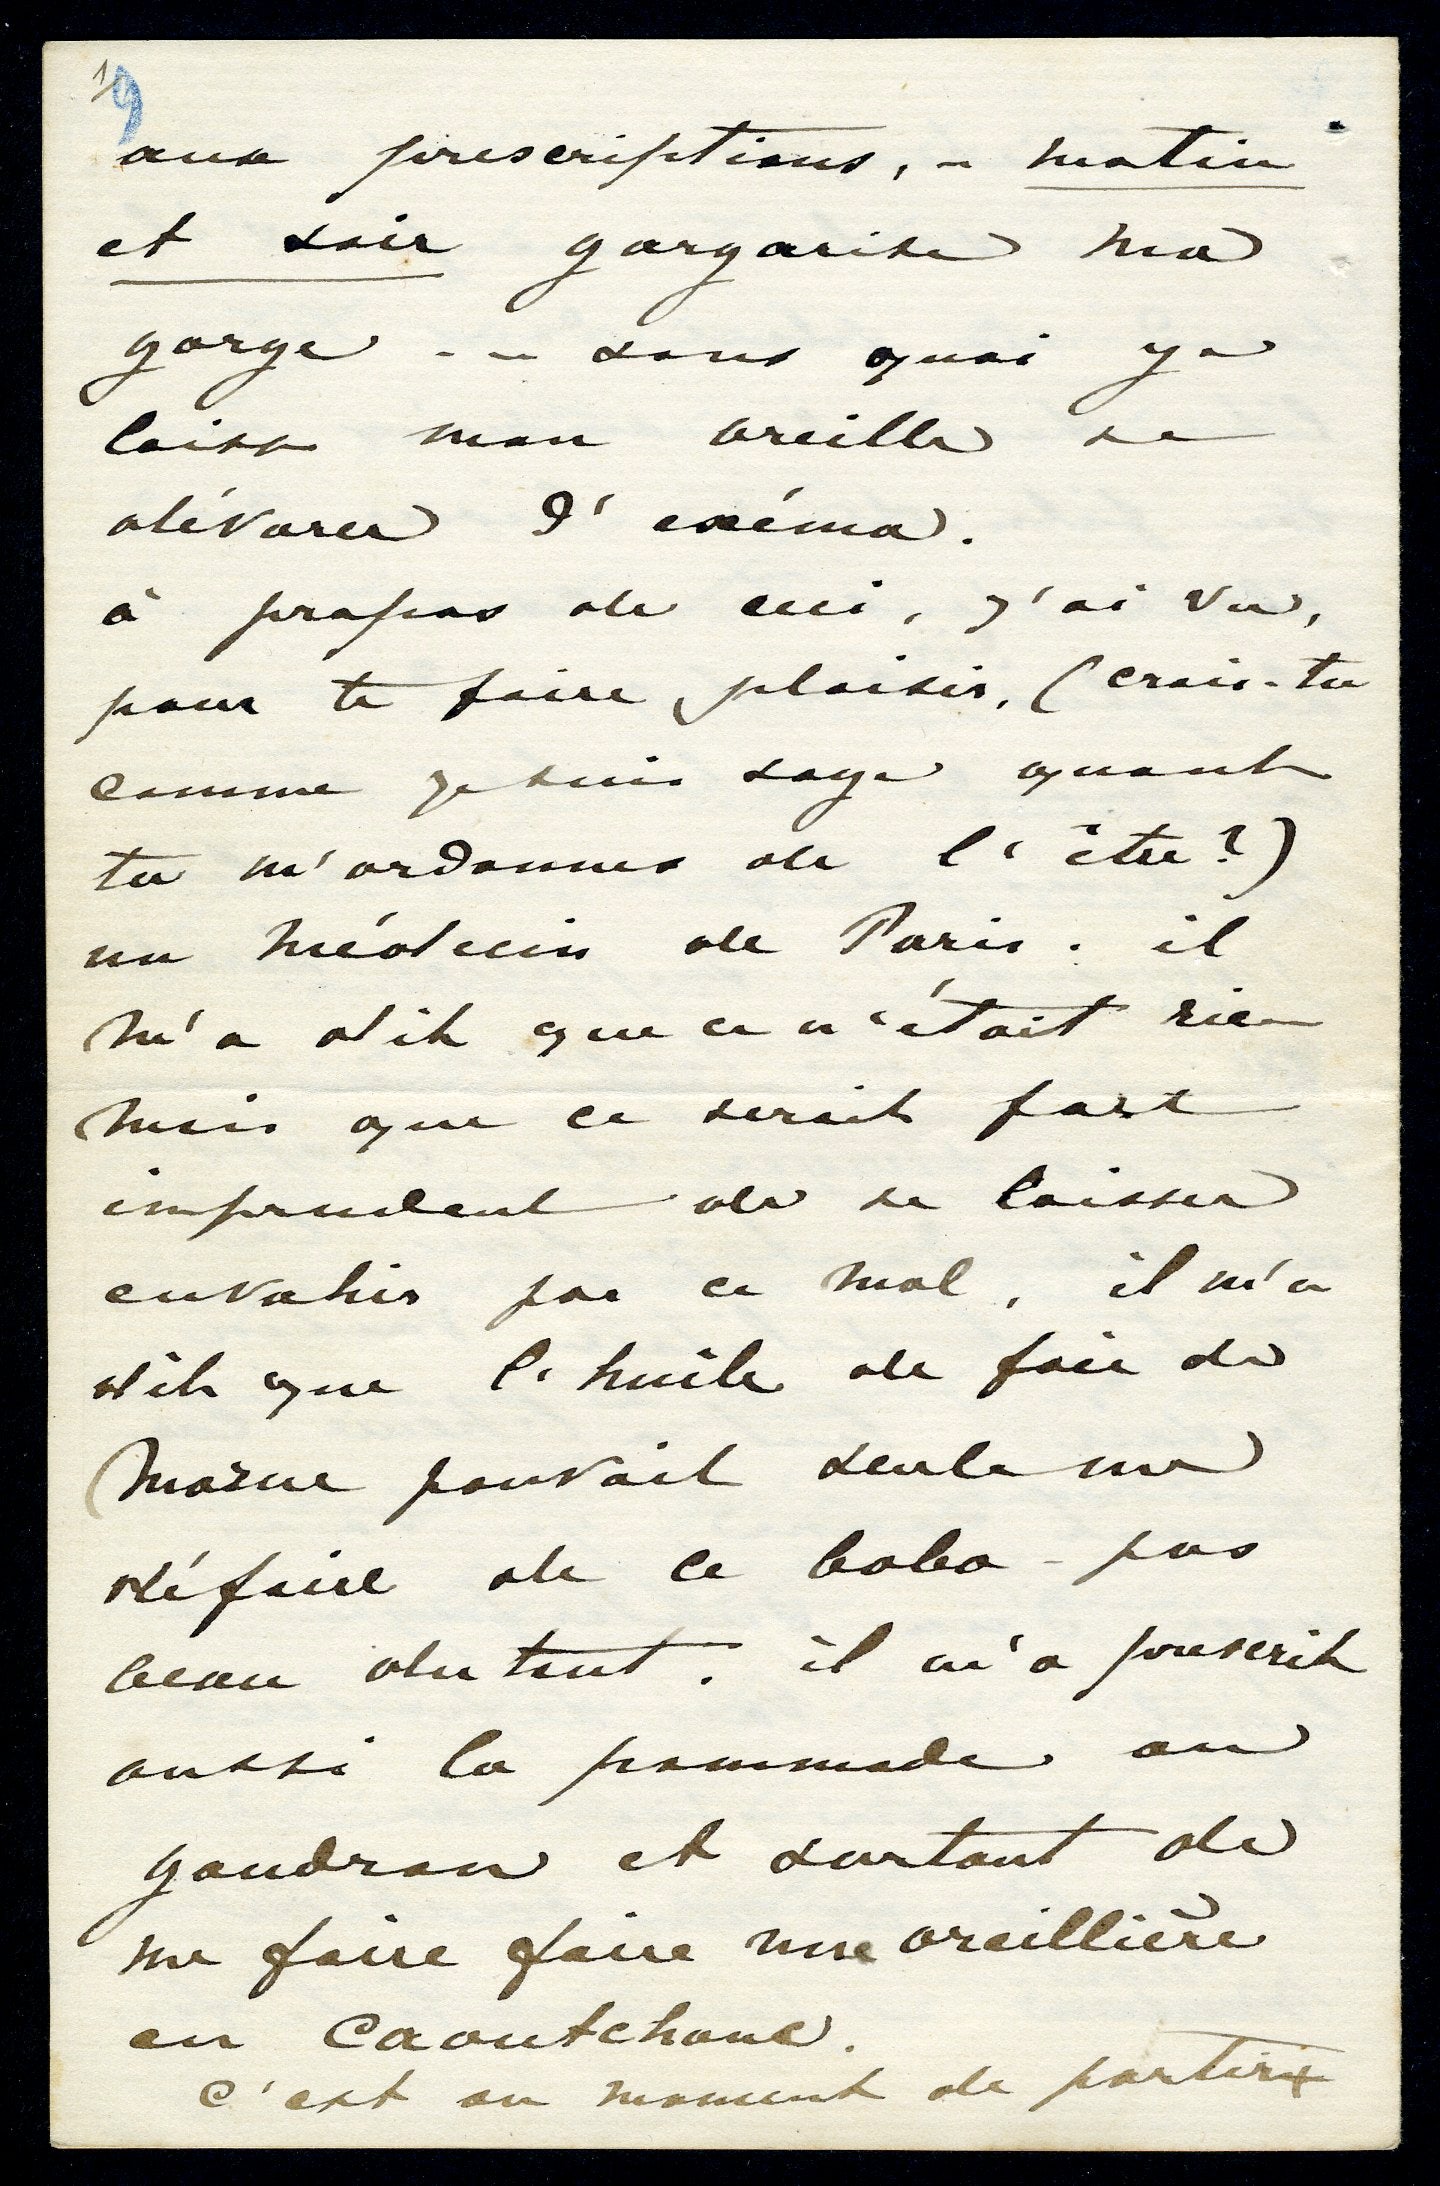 19
aux prescriptions, - matin
et soir gargarise ma
gorge - - sans quoi je
laisse mon oreille se
dévorer d'exéma.
à propos de ceci, j'ai vu,
pour te faire plaisir, (crois-tu
comme je suis sage quant
tu m'ordonnes de l'être?)
un médecin de Paris. il
m'a dit que ce n'était rien
mais que ce serait fort
imprudent de se laisser
envahir par ce mal, il m'a
dit que l'huile de foie de
morue pouvait seule me
défaire de ce bobo - pas
beau du tout. il m'a prescrit
aussi la pommade au
goudron et surtout de
me faire faire une oreillière
en Caoutchouc.
c'est au moment de partir